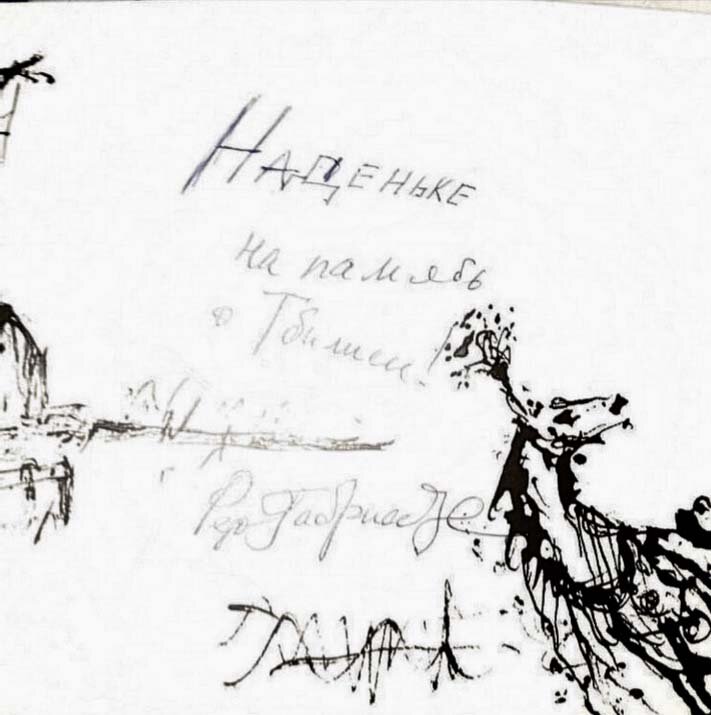 НАДЕНЬКЕ
на память
о Тбилиси!
Резо Габриадзе